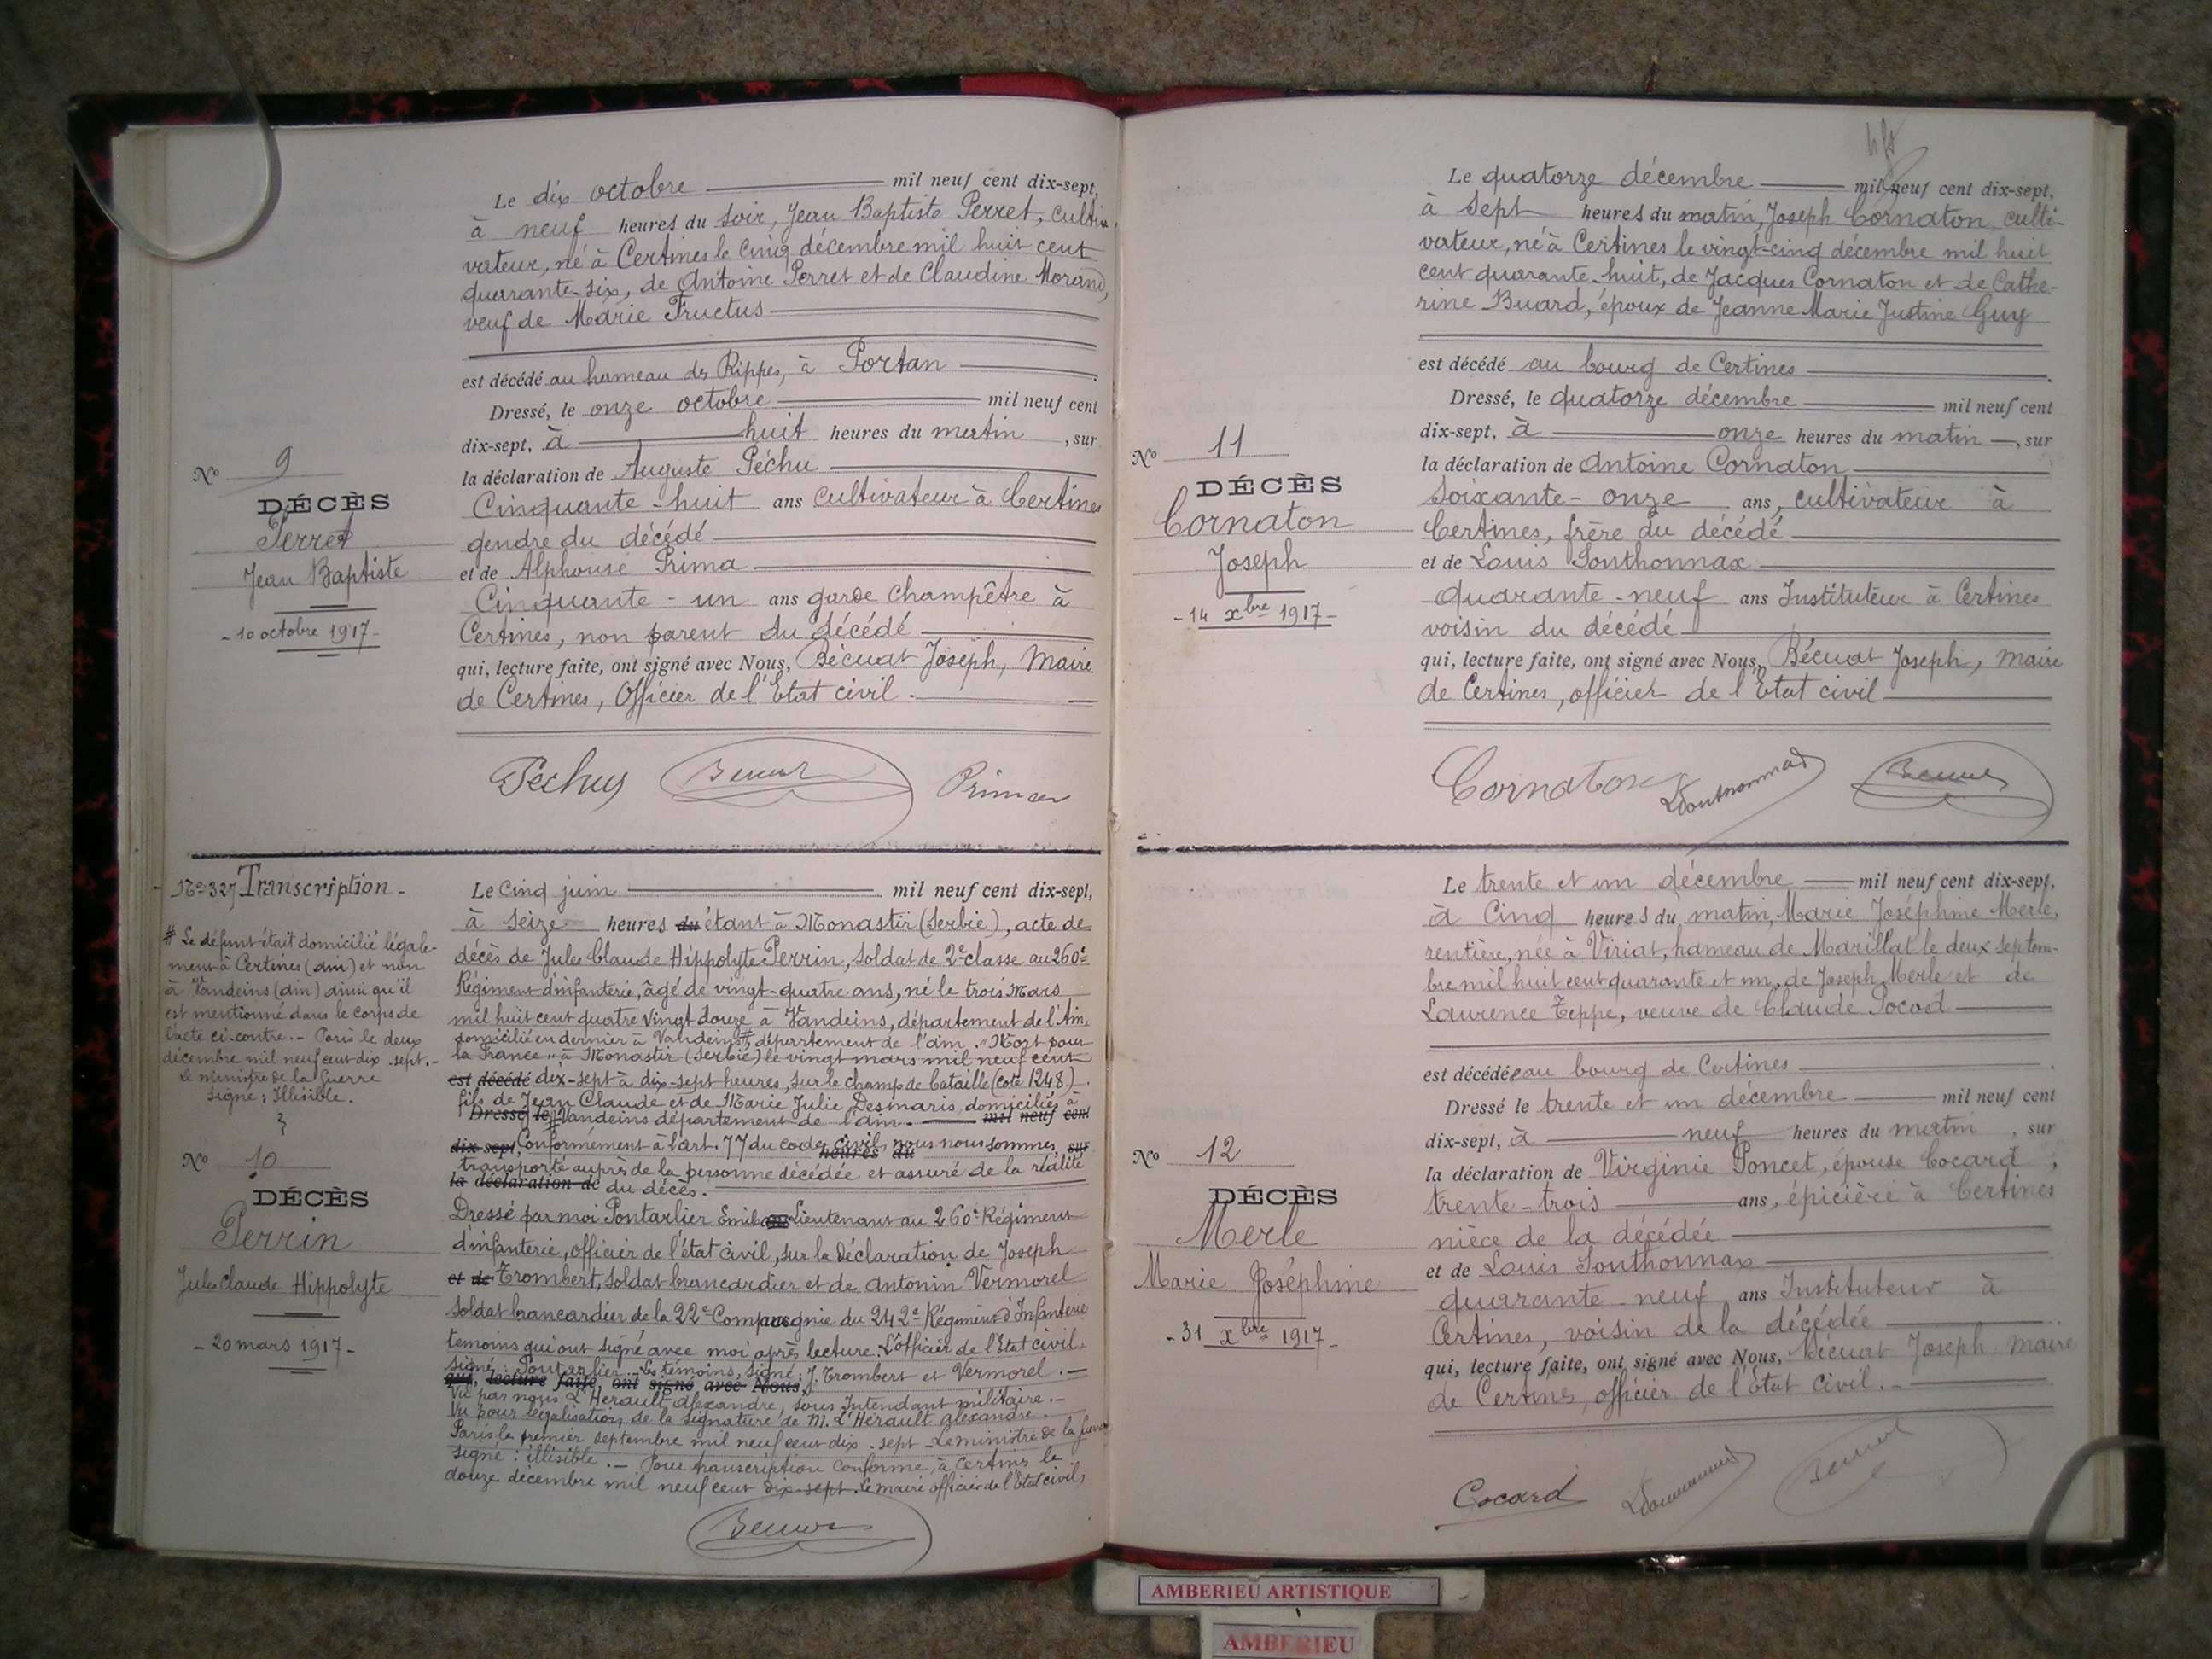 Le dix octobre mil neuf cent dix-sept,
à neuf heures du soir, Jean Baptiste Perret, culti-
vateur, né à Certines le cinq décembre mil huit cent
quarante-six, de Antoine Perret et de Claudine Morand,
veuf de Marie Fructus
est décédé au hameau des Rippes, à Portan
Dressé, le onze octobre mil neuf cent
dix-sept, à huit heures du matin, sur
la déclaration de Auguste Péchu
Cinquante-huit ans cultivateur à Certines
gendre du décédé
et de Alphonse Prima
Cinquante-un ans garde champêtre à
Certines, non parent du décédé
qui, lecture faite, ont signé avec Nous, Bécuat Joseph, Maire
de Certines, Officier de l'Etat civil.
Péchu Prima
No 9
DÉCÈS
Perret
Jean Baptiste
- 10 octobre 1917 -
No 327 Transcription -
# Le défunt était domicilié légale-
ment à Certines (Ain) et non
à Vandeins (Ain) ainsi qu'il
est mentionné dans le corps de
l'acte ci-contre. - Paris le deux
décembre mil neuf cent dix-sept. -
Le ministre de la Guerre
signé : Illisible.
No 10
DÉCÈS
Perrin
Jules Claude Hippolyte
- 20 mars 1917 -
Le Cinq juin mil neuf cent dix-sept,
à seize heures du étant à Monastir (Serbie), acte de
décès de Jules Claude Hippolyte Perrin, Soldat de 2e classe au 260e
Régiment d'infanterie, âgé de vingt-quatre ans, né le trois Mars
mil huit cent quatre vingt douze à Vandeins, département de l'Ain,
domicilié en dernier à Vandeins #, département de l'Ain. "Mort pour
la France" à Monastir (Serbie) le vingt mars mil neuf cent
est décédé dix-sept à dix-sept heures, sur le champ de bataille (cote 1248).
fils de Jean Claude et de Marie Julie Desmaris, domiciliés à
Dressé le Vandeins département de l'Ain. mil neuf cent
dix-sept, Conformément à l'art. 77 du code civil, nous nous sommes heures du sur
transporté auprès de la personne décédée et assuré de la réalité
la déclaration de du décès.
Dressé par moi Pontarlier Emile Lieutenant au 260e Régiment
d'infanterie, officier de l'état civil, sur la déclaration de Joseph
et de Trombert, Soldat brancardier et de Antonin Vermorel
Soldat brancardier de la 22e Compagnie du 242e Régiment d'Infanterie
témoins qui ont signé avec moi après lecture. L'officier de l'Etat civil,
signé : Pontarlier. Les témoins, signé : J. Trombert et Vermorel. -
qui, lecture faite, ont signé avec Nous,
Vu par nous L'Hérault Alexandre, sous Intendant militaire. -
Vu pour légalisation de la signature de M. L'Hérault Alexandre. -
Paris le premier septembre mil neuf cent dix-sept - Le ministre de la Guerre
signé : illisible. - Pour transcription conforme, à Certines le
douze décembre mil neuf cent dix-sept. Le maire officier de l'Etat civil,
Le quatorze décembre mil neuf cent dix-sept,
à sept heures du matin, Joseph Cornaton, culti-
vateur, né à Certines le vingt-cinq décembre mil huit
cent quarante-huit, de Jacques Cornaton et de Cathe-
rine Buard, époux de Jeanne Marie Justine Guy
est décédé au bourg de Certines
Dressé, le quatorze décembre mil neuf cent
dix-sept, à onze heures du matin, sur
la déclaration de Antoine Cornaton
soixante-onze ans, cultivateur à
Certines, frère du décédé
et de Louis Sonthonnax
quarante-neuf ans Instituteur à Certines
voisin du décédé
qui, lecture faite, ont signé avec Nous, Bécuat Joseph, Maire
de Certines, officier de l'Etat civil
Cornaton
No 11
DÉCÈS
Cornaton
Joseph
- 14 xbre 1917 -
Le trente et un décembre mil neuf cent dix-sept,
à Cinq heures du matin, Marie Joséphine Merle,
rentière, née à Viriat, hameau de Marillat le deux septem-
bre mil huit cent quarante et un, de Joseph Merle et de
Laurence Teppe, veuve de Claude Pocod
est décédée au bourg de Certines
Dressé le trente et un décembre mil neuf cent
dix-sept, à neuf heures du matin, sur
la déclaration de Virginie Poncet, épouse Cocard,
trente-trois ans, épicière à Certines
nièce de la décédée
et de Louis Sonthonnax
quarante-neuf ans Instituteur à
Certines, voisin de la décédée
qui, lecture faite, ont signé avec Nous, Bécuat Joseph Maire
de Certines, officier de l'Etat civil. -
Cocard
No 12
DÉCÈS
Merle
Marie Joséphine
- 31 xbre 1917 -
AMBERIEU ARTISTIQUE
AMBERIEU